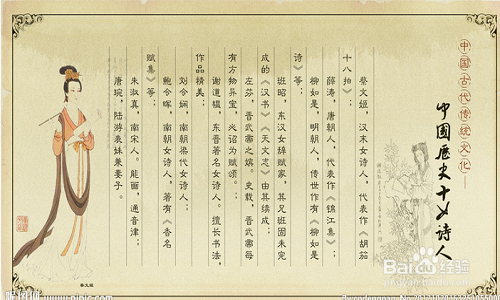 中国古代传统文化—
中國歷史十女詩人
蔡文姬，汉末女诗人，代表作《胡笳
十八拍》；
薛涛，唐朝人，代表作《锦江集》；
柳如是，明朝人，传世作有《柳如是
诗》等；
班昭，东汉女辞赋家，其兄班固未完
成的《汉书》《天文志》由其续成；
左芬，晋武帝之嫔。史载，晋武帝每
有方物异宝，必诏为赋颂。；
谢道韫，东晋著名女诗人。擅长书法，
作品精美；
刘令娴，南朝梁代女诗人；
鲍令晖，南朝女诗人，著有《香名
赋集》等；
朱淑真，南宋人。能画，通音律；
唐琬，陆游表妹兼妻子。
蔡文姬
Baidu 经验